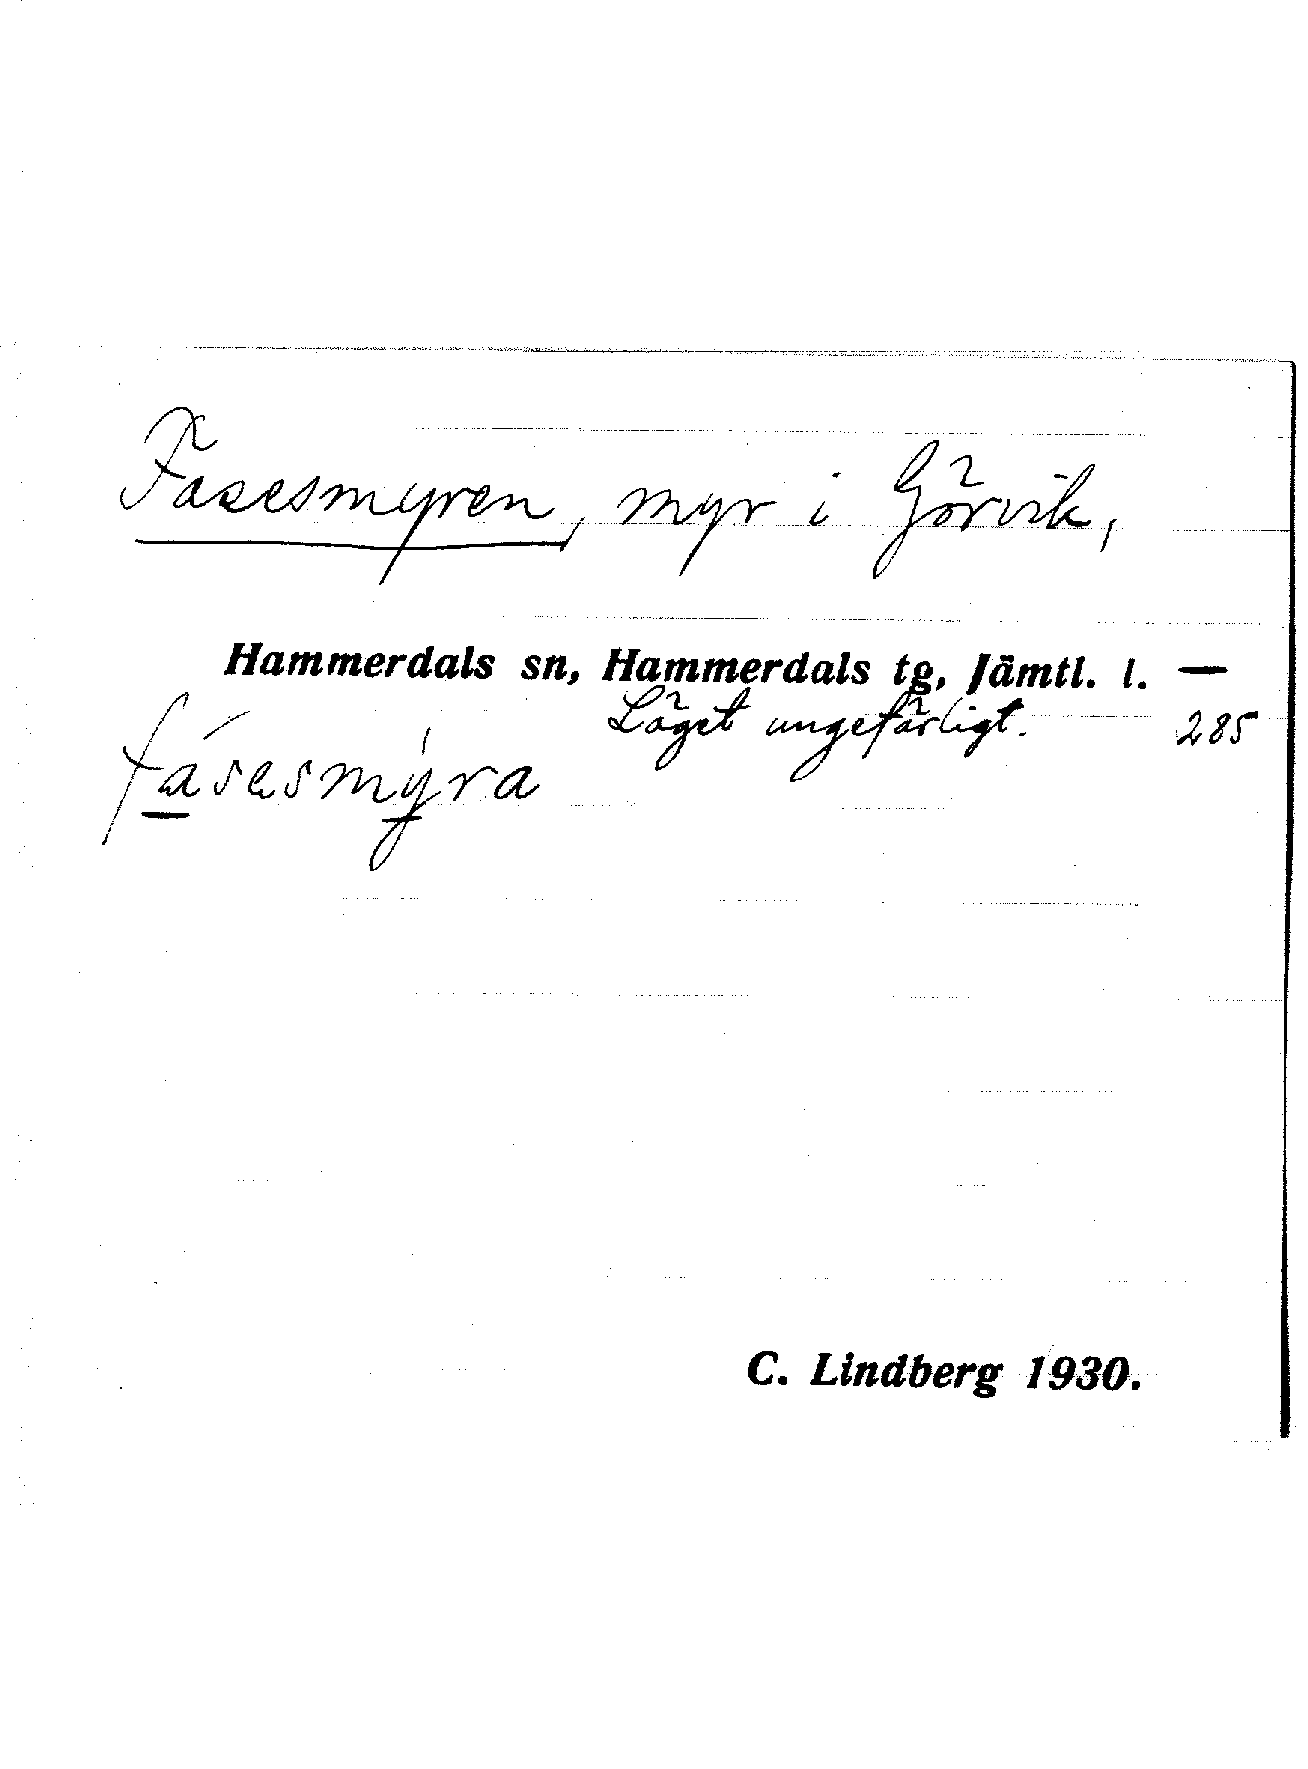 Fasesmyren, myr i Görvik,
Hammerdals sn, Hammerdals tg, Jämtl. l. —
Läget ungefärligt. 285
fásesmýra
C. Lindberg 1930.